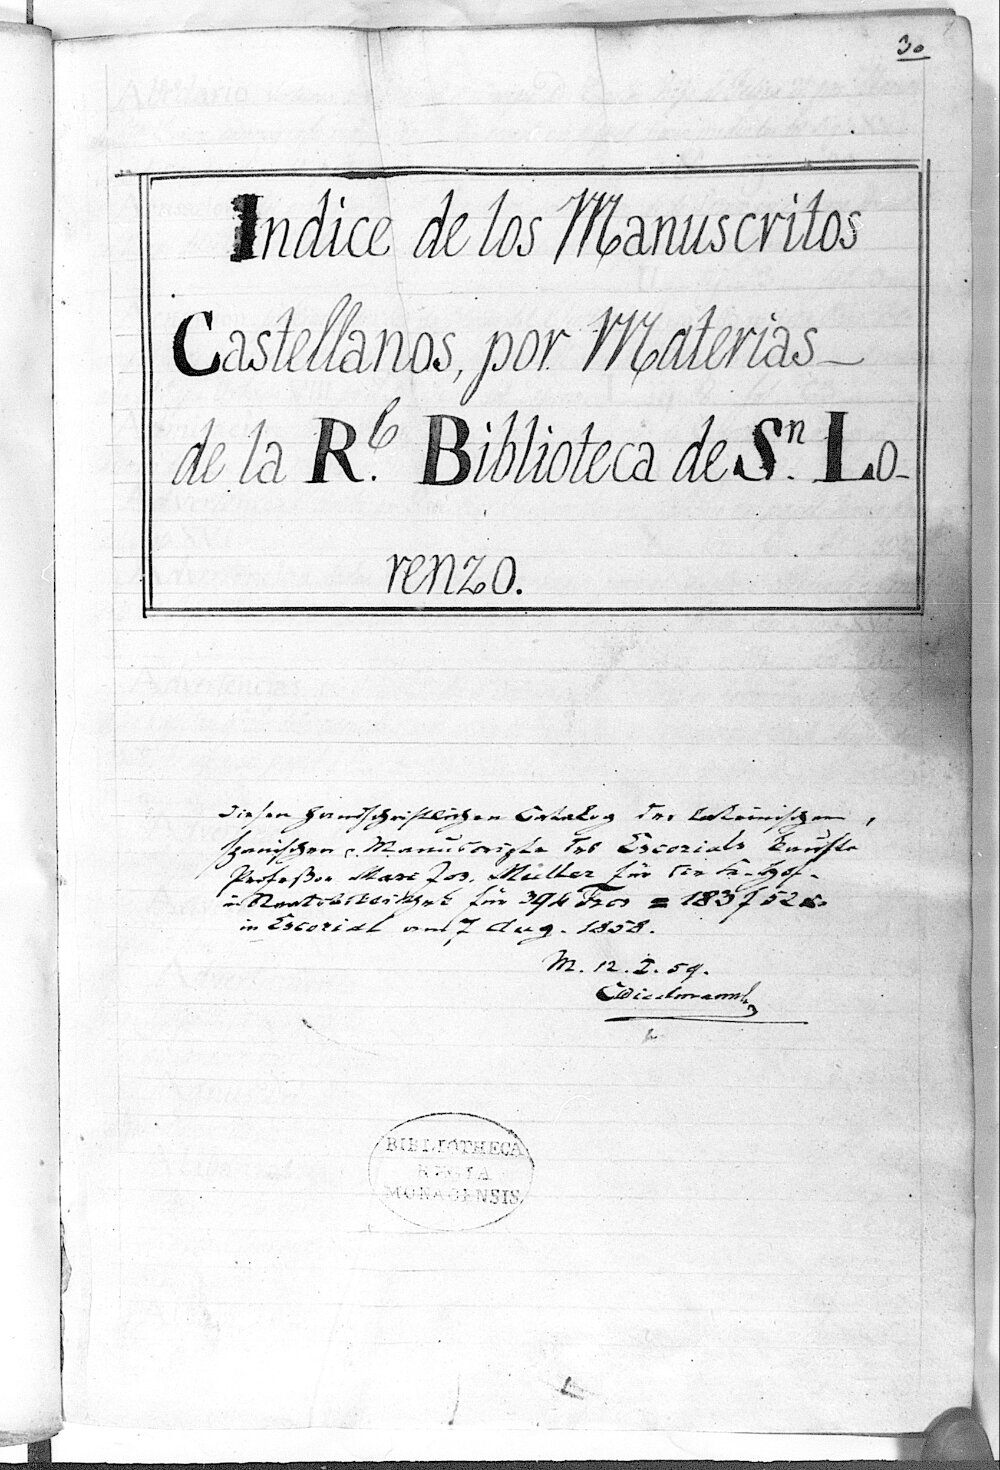 30
Indice de los Manuscritos
Castellanos, por Materias
de la R.l Biblioteca de Sn. Lo-
renzo.
Diesen handschriftlichen Catalog der lateinischen,
spanischen Manuscripte des Escorials kaufte
Professor Marc Jos. Müller für die k. Hof-
u Staatsbibliothek für 394 Frcs = 183 f 52 x
in Escorial am 7 Aug. 1858.
M. 12. I. 59.
BIBLIOTHECA
REGIA
MONACENSIS.